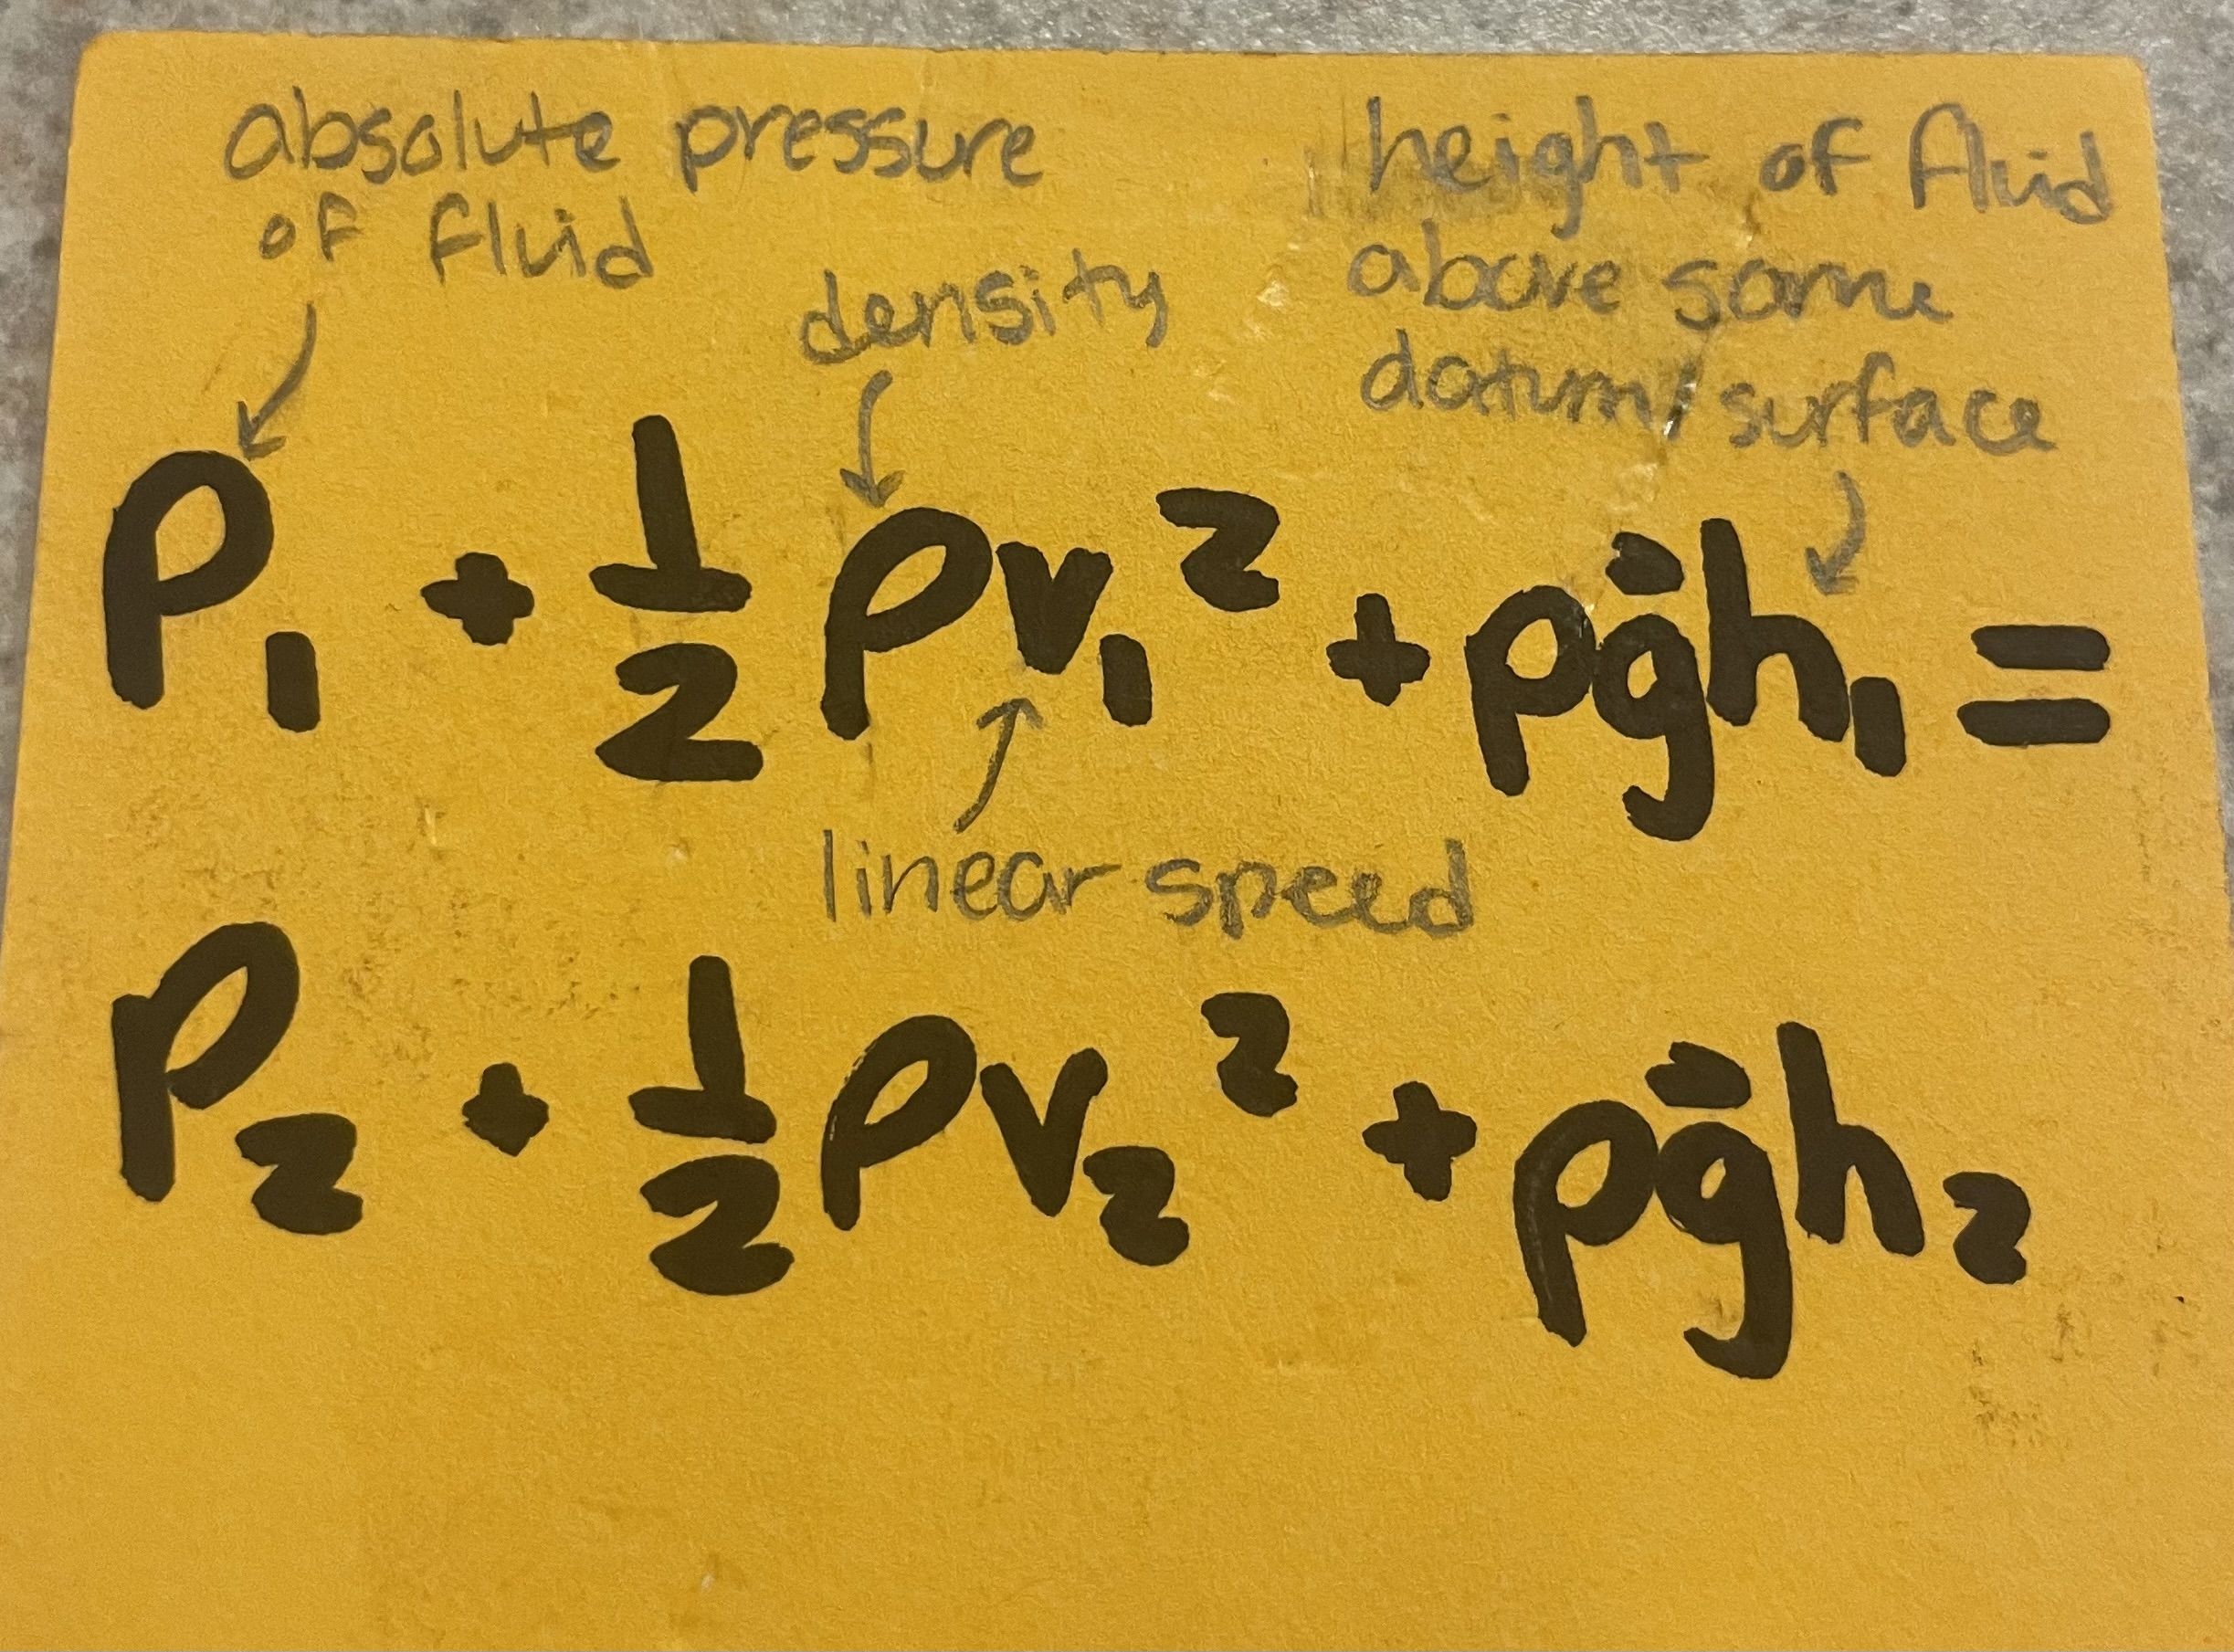 absolute pressure
of fluid
height of fluid
above some
datum/surface
density
P₁ + ½ ρv₁² + ρg⃗h₁ =
linear speed
P₂ + ½ ρv₂² + ρg⃗h₂